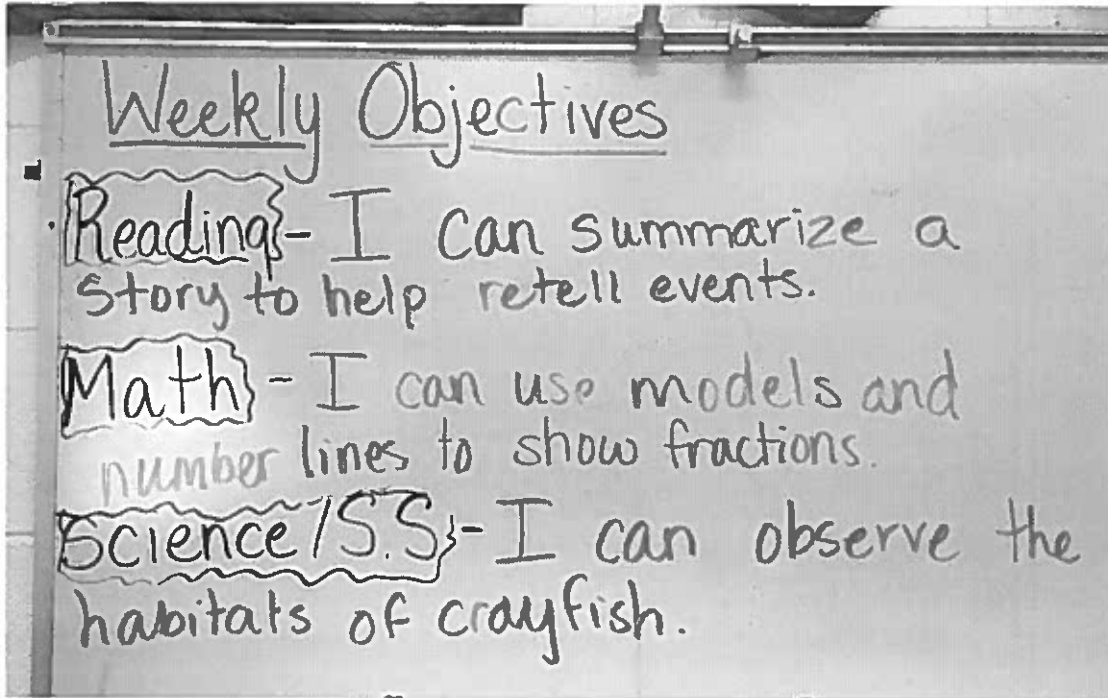 Weekly Objectives
Reading - I can summarize a
story to help retell events.
Math - I can use models and
number lines to show fractions.
Science/S.S - I can observe the
habitats of crayfish.